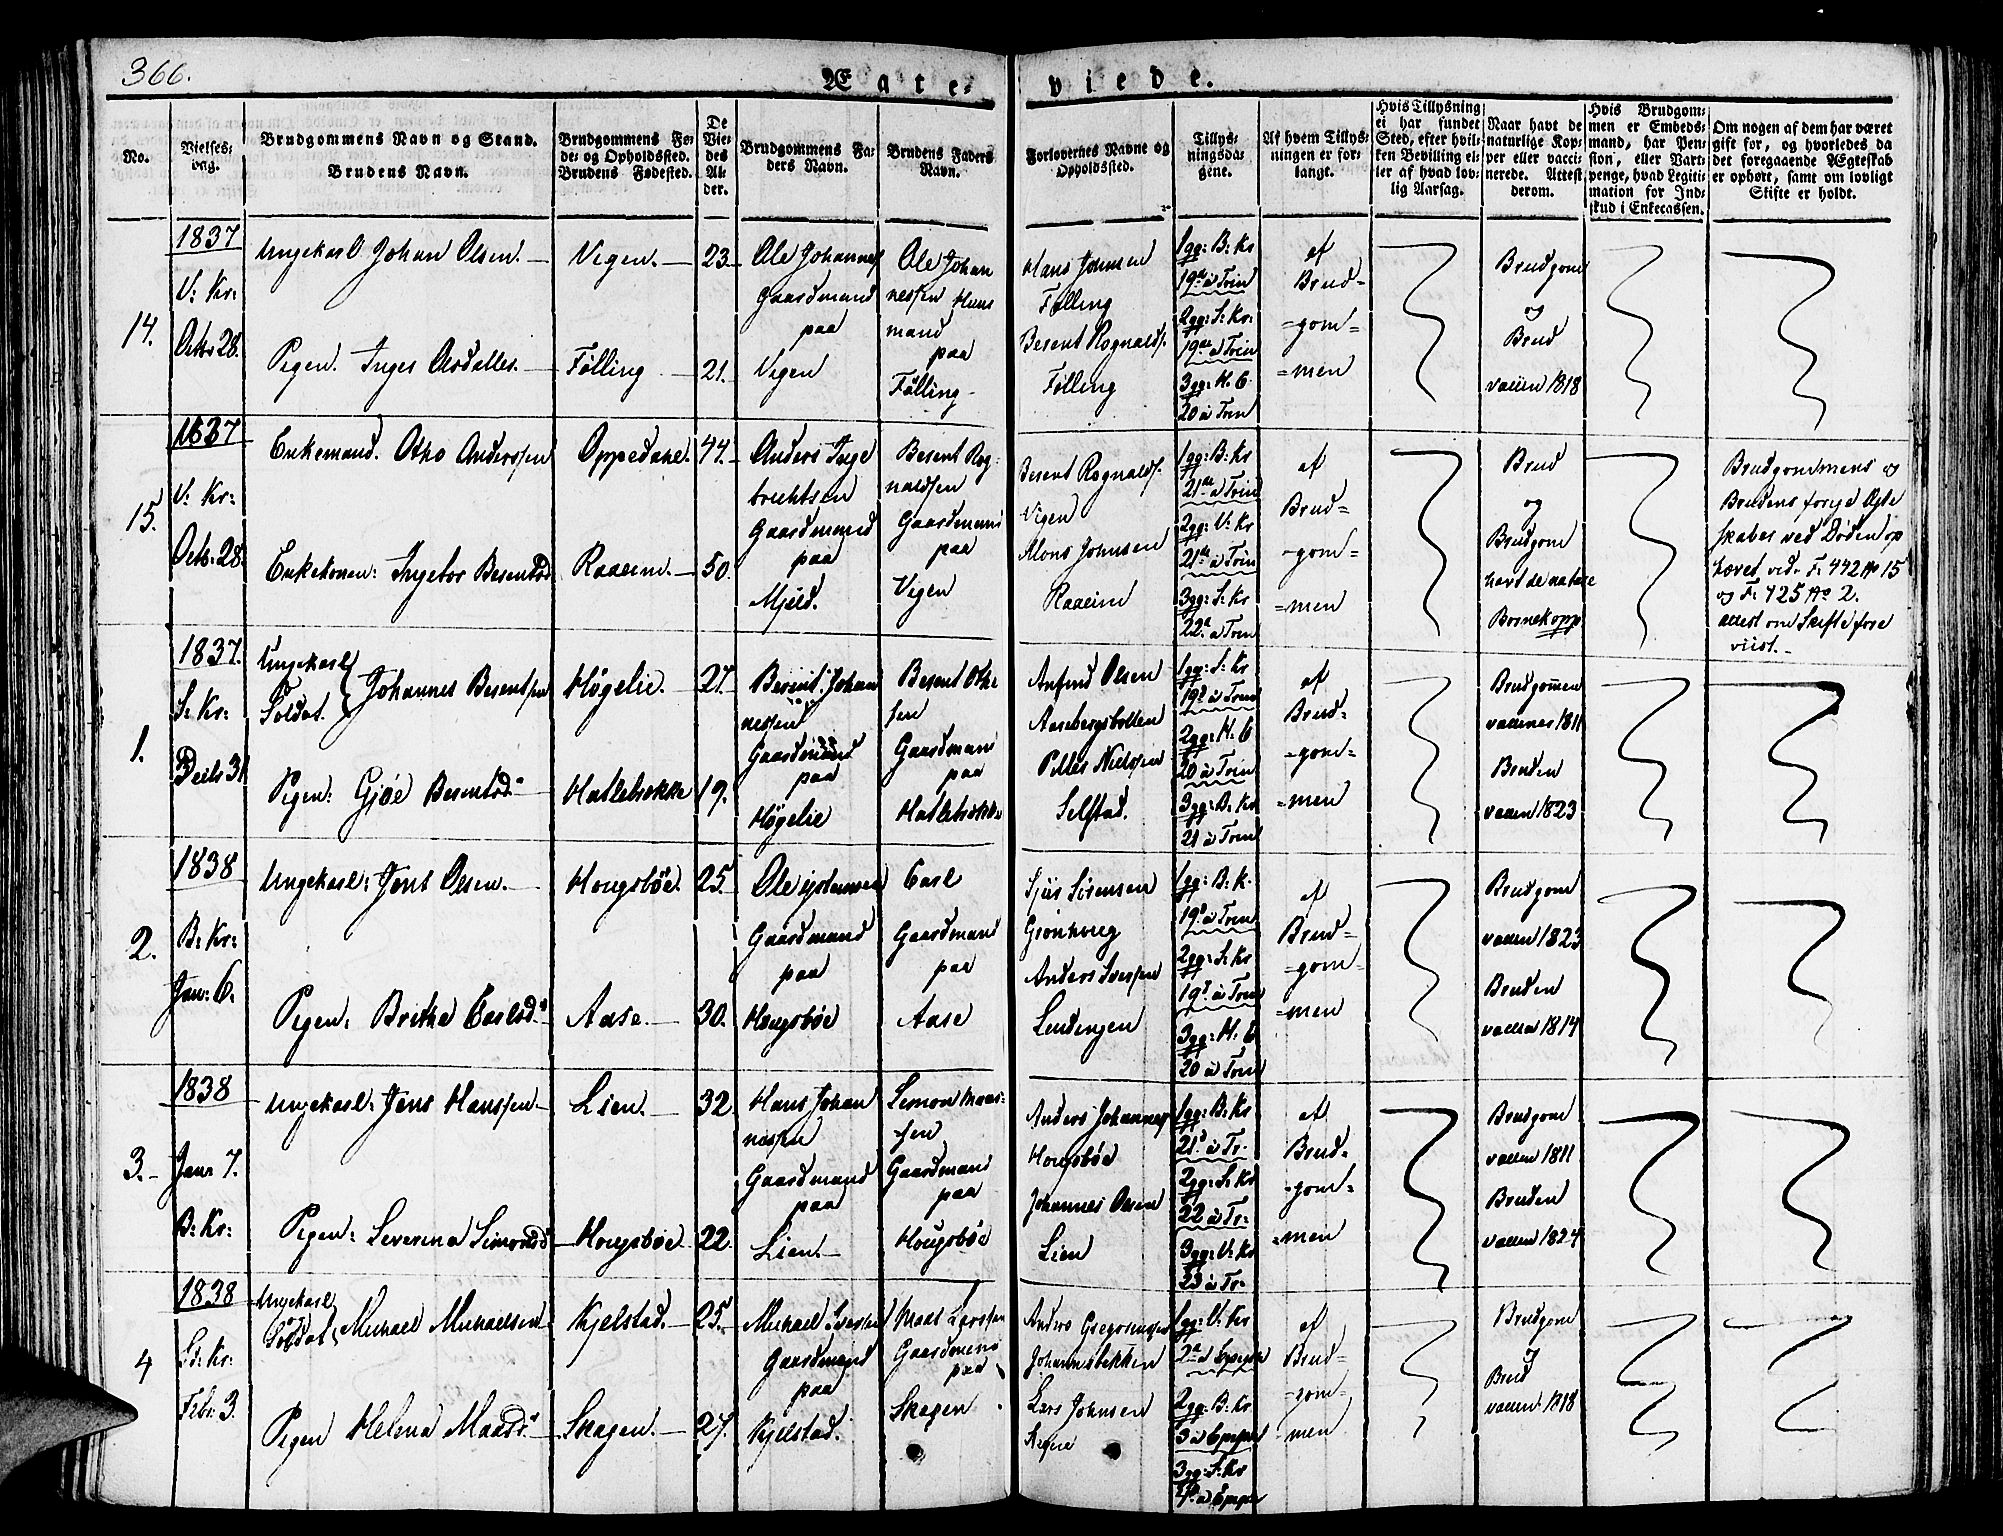 366.
Ægte- viede.
No.
Vielses-
dag.
Brudgommens Navn og Stand.
Brudens Navn.
Brudgommens Fø-
de- og Opholdssted.
Brudens Fødested.
De
Vie-
des
Al-
der.
Brudgommens Fa-
ders Navn.
Brudens Faders
Navn.
Forlovernes Navne og
Opholdssted.
Tillys-
ningsda-
gene.
Af hvem Tillys-
ningen er for-
langt.
Hvis Tillysning
ei har fundet
Sted, efter hvil-
ken Bevilling el-
ler af hvad lov-
lig Aarsag.
Naar havt de
naturlige Kop-
per eller vacci-
nerede. Attest
derom.
Hvis Brudgom-
men er Embeds-
mand, har Pen-
sion, eller Vart-
penge, hvad Legiti-
mation for Ind-
skud i Enkecassen.
Om nogen af dem har været
gift før, og hvorledes da
det foregaaende Ægteskab
er ophørt, samt om lovligt
Skifte er holdt.
14.
1837
V: Kr:
Octr 28.
Ungekarl Johan Olsen.
Pigen. Inger
Vigen.
Følling
23.
21.
Ole Johannes
Gaardmand
paa
Vigen
Ole Johan
nessen Huus
mand
paa
Følling
Hans Johnsen
Følling
Berent Rognalds.
Følling
1gg: B: Kr
19de a Trin
2gg: S: Kr:
19de a Trin
3gg: H. 6
20 a Trin
af
Brud=
=gom=
=men
Brudgom
og
Brud
vaccin 1818
15.
1837
V: Kr:
Octb: 28.
Enkemand. Otho Anderssen
Enkekonen: Ingebor Berentsd
Oppedahl.
Raaeim.
44.
50.
Anders Inge
brichtsen
Gaardmand
paa
Mjeld.
Berent Rog-
naldsen
Gaardmand
paa
Vigen
Berent Rognalds.
Vigen
Mons Johnsen
Raaeim
1gg: B: Kr
21de a Trin
2gg: V: Kr
21de a Trin
3gg: S: Kr
22. a Trin
af
Brud=
-gom=
=men
Brud
og
Brudgom
havt de nature
Bornekopp
Brudgommens og
Brudens forrige Ægte
skaber ved Døden op
hævet vid. F: 442 No 15
og F: 425 No 2.
attest om Skifte fore
viist.
1.
1837.
S: Kr:
Decbr 31
Ungekarl
Soldat. Johannes Berentsen
Pigen: Gjøe Berentsd.
Høgelie.
Hatlebrekke
27.
19.
Berent Johan
nessen
Gaardmand
paa
Høgelie
Berent Othe
sen
Gaardmand
paa
Hatlebrekke
Anfind Olsen
Aasebergsbotten
Peder Nielsen
Selstad.
1gg: S: Kr
19d a Trin
2gg: H. 6
20 a Trin
3gg: B: Kr
21 a Trin
af
Brud-
-gom=
=men
Brudgommen
vaccineret 1811
Bruden
vaccin 1823
2.
1838
B: Kr:
Janr: 6.
Ungekarl: Jens Olsen.
Pigen: Brithe Carlsd.
Hougsbøe.
Aase.
25.
30.
Ole
Gaardmand
paa
Hougsbøe
Carl
Gaardmand
paa
Aase
Sjur Sørensen
Grønhoug
Anders Iversen
Lendingen
1gg: B: K.
19d a Trin
2gg: S: Kr
19d a Trin
3gg: H. 6
20 a Trin
af
Brud=
=gom=
=men
Brudgom
vaccin 1823
Bruden
vaccin 1814
3.
1838
Janr 7.
B: Kr:
Ungekarl: Jens Hanssen
Pigen: Severina Simonsd
Lien.
Hougsbøe
32
22.
Hans Johan
nessen
Gaardmand
paa
Lien.
Simon Maas-
sen
Gaardmand
paa
Hougsbøe
Anders Johannes
Hougsbøe
Johannes Olsen
Lien
1gg: B: Kr
21d a Tr.
2gg: S: Kr
22 a Tr:
3gg: V: Kr
23 a Tr.
af
Brud=
-gom=
=men
Brudgom
vaccin 1811
Bruden
vaccin 1824
4
1838
Sd: Kr:
Febr: 3.
Ungekarl
og
Soldat Michael Michaelsen
Pigen Helena Maasd.
Kjelstad.
Skagen.
25.
27.
Michael Iversen
Gaardmand
paa
Kjelstad.
Maas Larssen
Gaardmand
paa
Skagen
Anders Gregoriussen
Johannesbekken
Lars Johnsen
1gg: V: Kr
2d a Epiph
2gg: B: Kr
3 a Epiph
3gg: S: Kr
4d a Epiph
af
Brud=
-gom=
-men
Brudgom
og
Brud
vaccin 1818